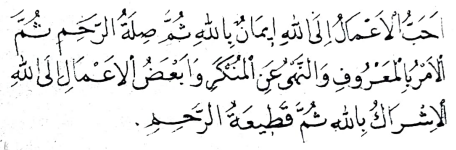 اَحَبُّ الْاَعْمَالُ اِلَى اللهِ اِيمَانٌ بِاللهِ ثُمَّ صِلَةُ الرَّحِمِ ثُمَّ
الْاَمْرُ بِالْمَعْرُوفِ وَالنَّهْىُ عَنِ الْمُنْكَرِ وَاَبْغَضُ الْاَعْمَالِ اِلَى اللهِ
الْاِشْرَاكُ بِاللهِ ثُمَّ قَطِيعَةُ الرَّحِمِ.